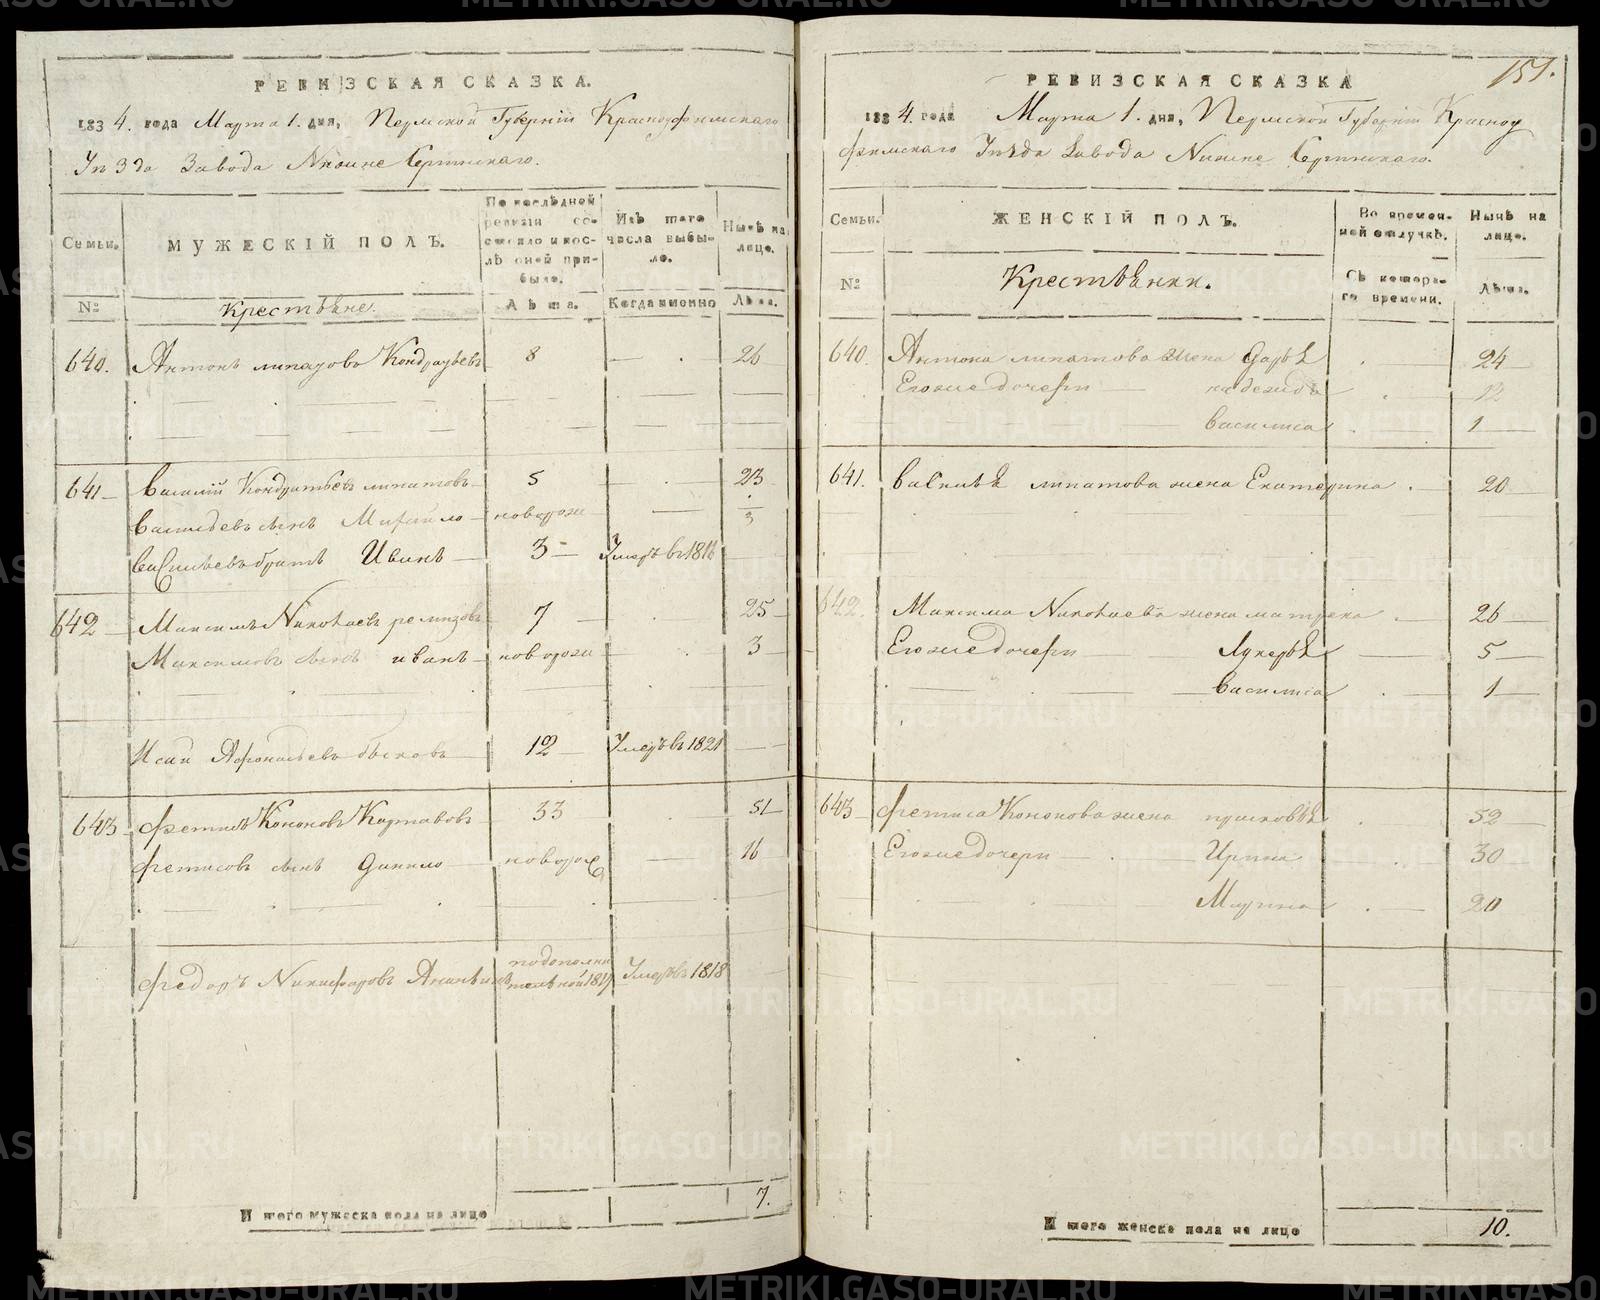 РЕВИЗСКАЯ СКАЗКА.
1834. года Марта 1. дня, Пермской Губернiи Красноуфимскаго
Уезда Завода Нижне Сергинскаго.
Семьи.
МУЖЕСКIЙ ПОЛЪ.
По послѣдней ревизiи состояло и послѣ оной прибыло.
Изъ того числа выбыло.
Нынѣ на лице.
№
Крестьяне.
Лѣта.
Когда именно
Лѣта.
640. Антонъ Липатовъ Кондратьевъ 8 — 26
641 Василiй Кондратьевъ Липатовъ 5 — 23
Васильевъ сынъ Михайло новорож — 3
Васильевъ братъ Иванъ 3 Умеръ в 1816
642 Максимъ Николаевъ ремизовъ 7 25
Максимовъ сынъ иванъ новорож 3
Исай Афонасьевъ быковъ 12 Умеръ в 1821
643 Фетисъ Кононовъ Картавовъ 33 51
Фетисовъ сынъ Данило новорож 16
Федоръ Никифоровъ Ананьинъ по дополнительной 1817 Умеръ в 1818
Итого мужеска пола на лице 7.
151.
РЕВИЗСКАЯ СКАЗКА
1834. года Марта 1. дня, Пермской Губернiи Красноу
фимскаго Уѣзда Завода Нижне Сергинскаго.
Семьи.
ЖЕНСКIЙ ПОЛЪ.
Во временной отлучкѣ.
Нынѣ на лице.
№
Крестьянки.
Съ котораго времени.
Лѣта.
640. Антона липатова жена Дарья 24
Егожие дочери надежда 12
василиса 1
641. Василья липатова жена Екатерина 20
642. Максима Николаева жена матрена 26
Егожие дочери Лукерья 5
Василиса 1
643 Фетиса Кононова жена прасковья 52
Егожие дочери Ирина 30
Марина 20
Итого женска пола на лице 10.
METRIKI.GASO-URAL.RU